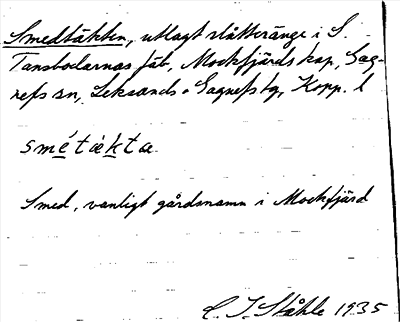 Smedtäkten, utlagt slätteränge i S.
Tansbodarnas fäb., Mockfjärds kap., Gag-
nefs sn, Leksands o Gagnefs tg, Kopp. l
smétäkta
Smed, vanligt gårdsnamn i Mockfjärd
C. I. Ståhle 1935